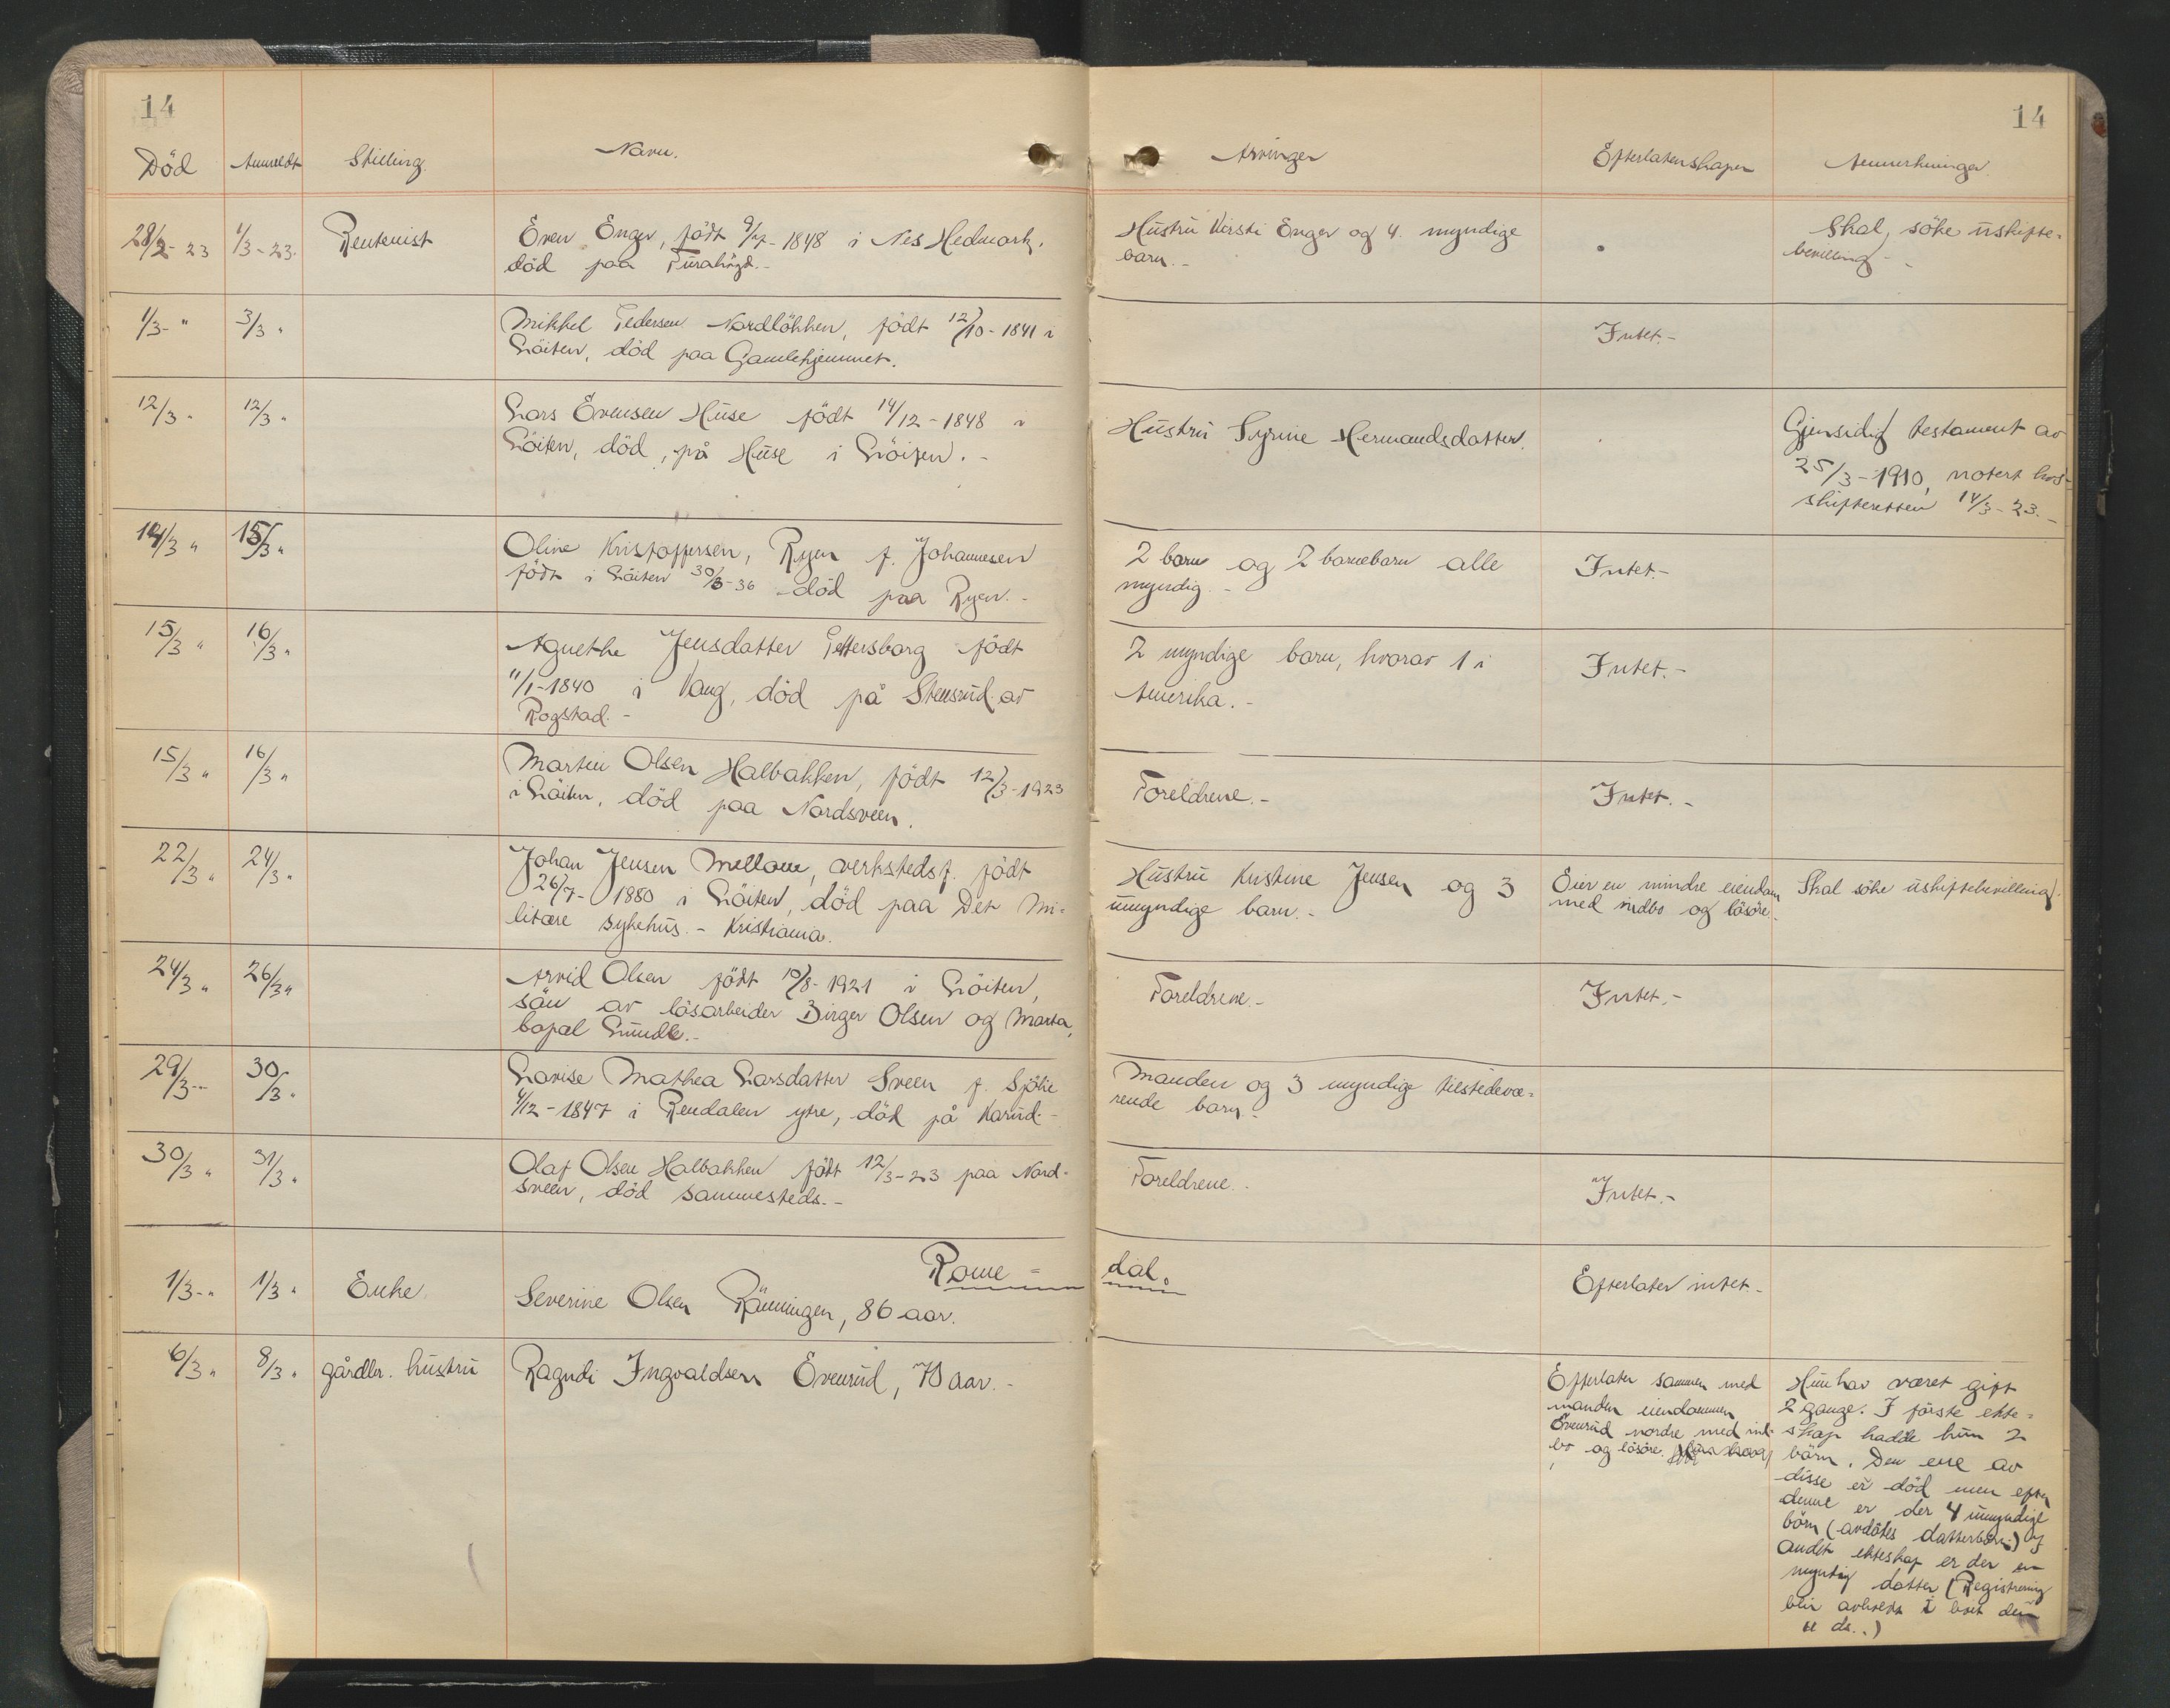 14
14
Död Anmeldt Stilling. Navn. Arvinger Efterlatenskaper Anmerkninger.
28/2-23 1/3-23. Rentenist Even Enger, født 9/7-1848 i Nes Hedmark, Hustru Kirsti Enger og 4 myndige Skal søke uskifte-
död paa Furuhøgd.- barn.- bevilling.-
1/3-" 3/3 " Mikkel Pedersen Nordløkken, født 12/10-1841 i Intet.-
Löiten, död paa Gamlehjemmet.
12/3 " 12/3 " Lars Evensen Huse født 14/12-1848 i Hustru Syrine Hermandsdatter. Gjensidig testament av
Löiten, död, på Huse i Löiten.- 25/3-1910, notert hos
skifteretten 14/3-23.-
14/3 " 15/3 " Oline Kristoffersen, Ryen f. Johannesen 2 barn og 2 barnebarn alle Intet.-
födt i Löiten 30/3-36 död paa Ryen.- myndig.-
15/3 " 16/3 " Agnethe Jensdatter Pettersborg født 2 myndige barn, hvorav 1 i Intet.-
11/1-1840 i Vang, död på Stensrud av Amerika.-
Rogstad.-
15/3 " 16/3 " Martin Olsen Halbakken, født 12/3-1923 Foreldrene.- Intet.-
i Löiten, död paa Nordsveen.
22/3 " 24/3 " Johan Jensen Mellom, verkstedsf. født Hustru Kristine Jensen og 3 Eier en mindre eiendom Skal söke uskiftebevilling.
26/7-1880 i Löiten, död paa Det Mi- umyndige barn.- med indbo og lösöre.-
litære sykehus.- Kristiania.
24/3 " 26/3 " Arvid Olsen født 10/8-1921 i Löiten, Foreldrene.- Intet.-
sön av lösarbeider Birger Olsen og Marta,
bopæl Lunde.-
29/3-- 30/3 " Lovise Mathea Larsdatter Sveen f. Sjölie Manden og 3 myndige tilstedevæ-
4/12-1847 i Rendalen ytre, död på Karud.- rende barn.-
30/3 " 31/3 " Olaf Olsen Halbakken født 12/3-23 paa Nord- Foreldrene.- Intet.-
sveen, död sammesteds.-
Rome- dal.
1/3-" 1/3 " Enke Severine Olsen Rönningen, 86 aar. Efterlater intet.-
6/3 " 8/3 " gårdbr. hustru Ragndi Ingvaldsen Evenrud, 70 aar.-
Efterlater sammen med
manden eiendommen
Evenrud nordre med ind-
bo og lösöre.
Hun har været gift
2 gange. I förste ekte-
skap hadde hun 2
börn. Den ene av
disse er död men efter
denne er der 4 umyndige
börn (avdödes datterbörn) I
andet ekteskap er der en
myndig datter (Registrering
blir avholdt i boet den
ds..)